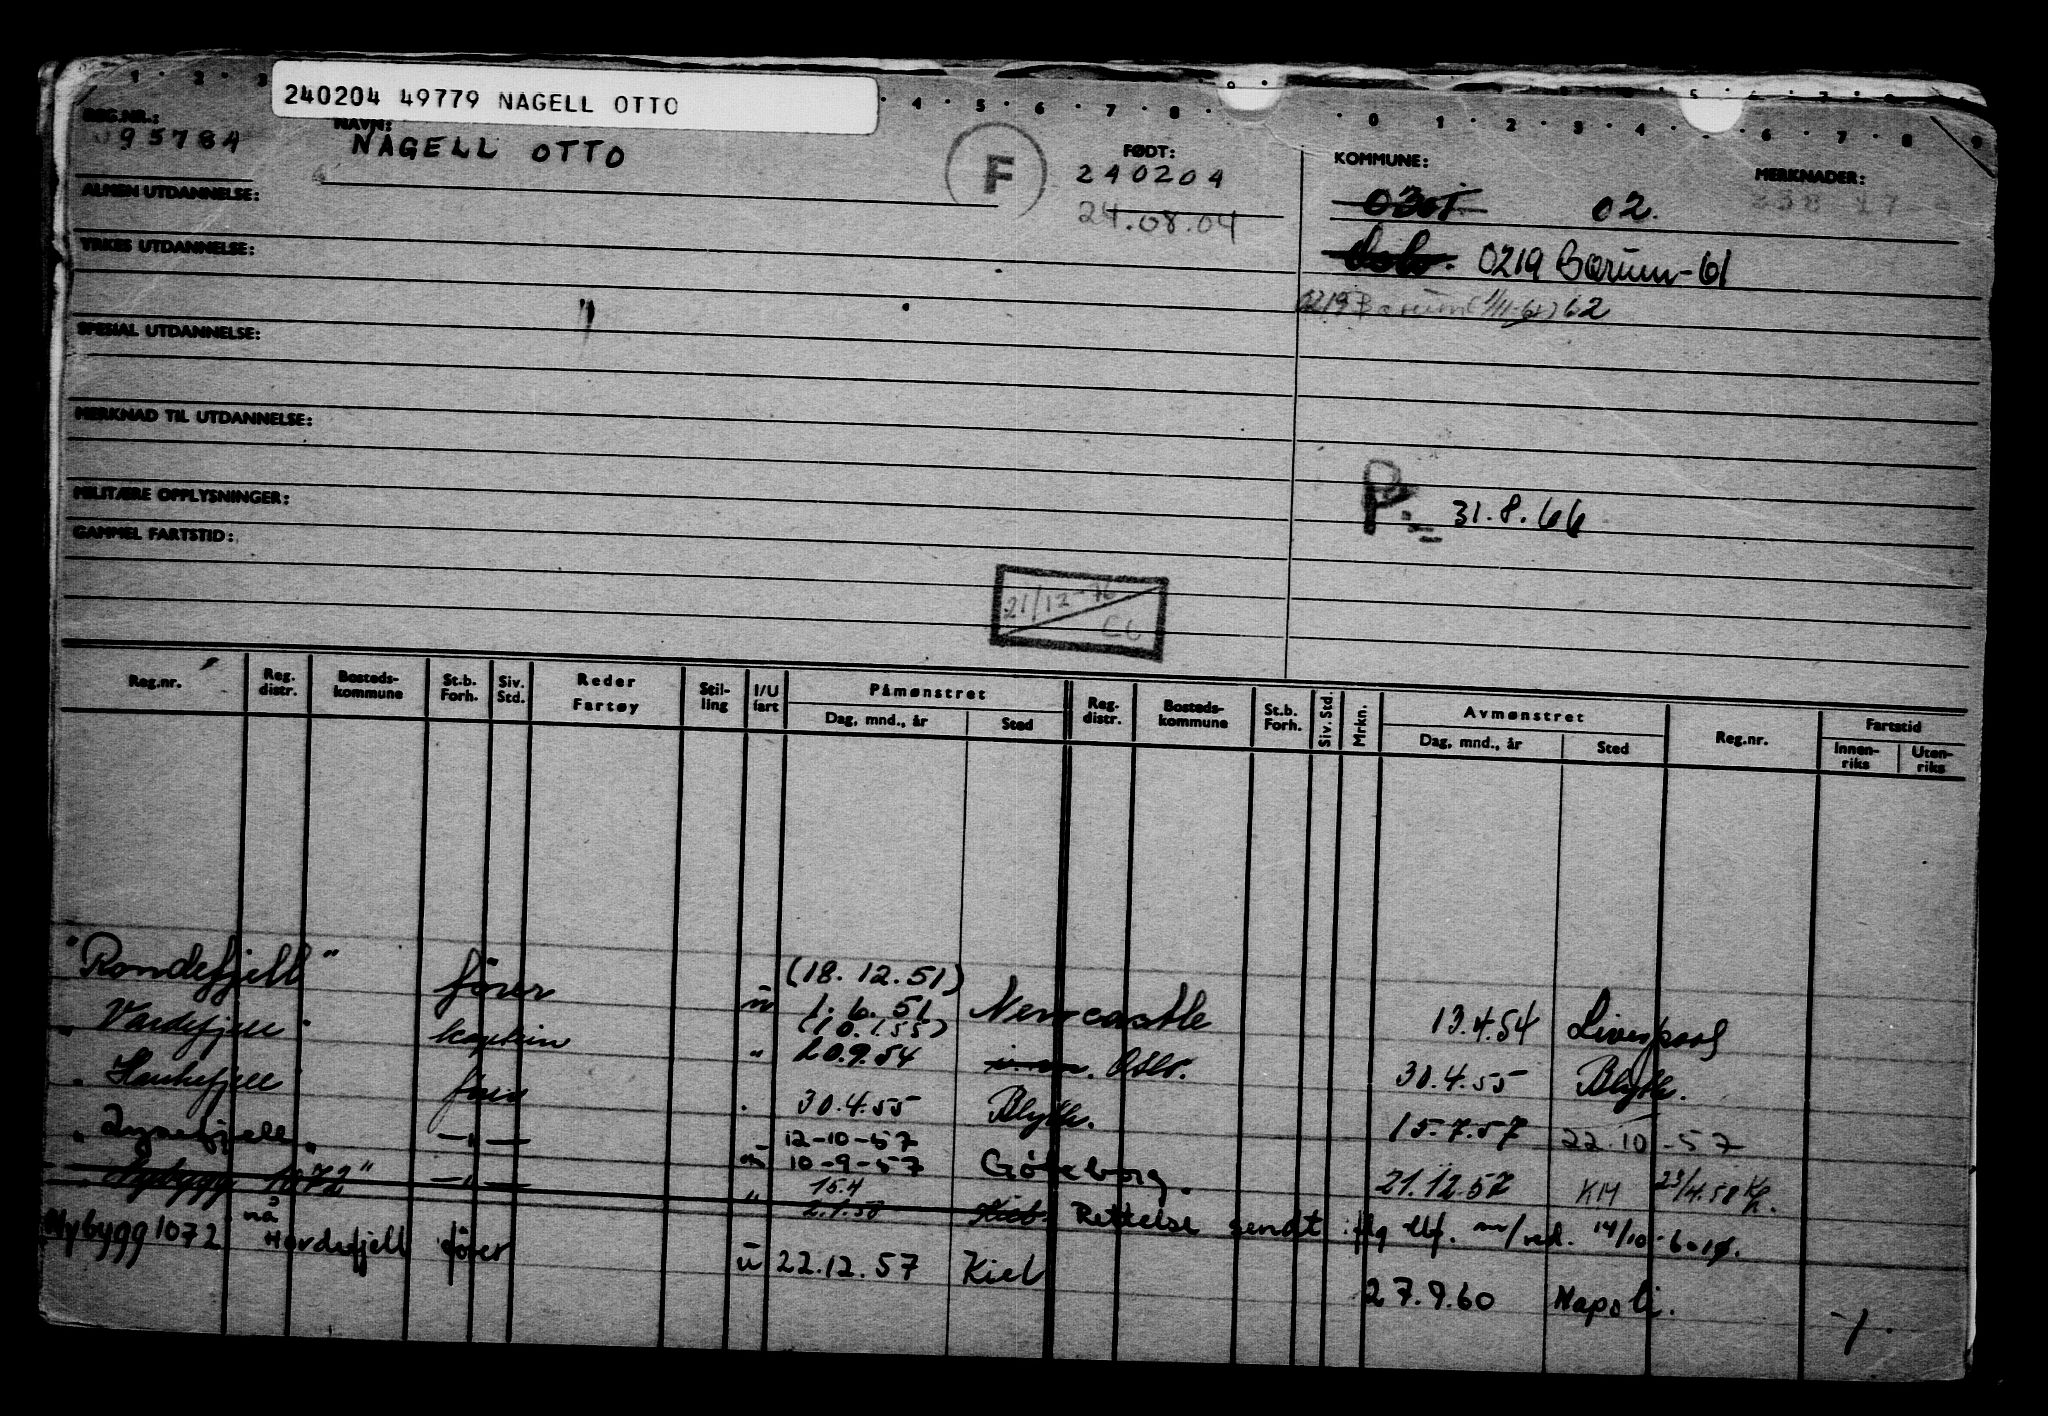 240204 49779 NAGELL OTTO
REG.NR.:
095784
NAVN:
NAGELL OTTO
F
FØDT:
240204
24.08.04
KOMMUNE:
0301 02.
Oslo. 0219 Bærum-61
0219 Bærum (1/11-61) 62
MERKNADER:
ALMEN UTDANNELSE:
YRKES UTDANNELSE:
SPESIAL UTDANNELSE:
MERKNAD TIL UTDANNELSE:
MILITÆRE OPPLYSNINGER:
GAMMEL FARTSTID:
P. 31.8.66
21/12-76
Reg.nr. Reg. distr. Bosteds-kommune St.b. Forh. Siv. Std. Reder Fartøy Stil-ling I/U fart Påmønstret Dag, mnd., år Sted Reg. distr. Bosteds-kommune St.b. Forh. Siv. Std. Mrkn. Avmønstret Dag, mnd., år Sted Reg.nr. Fartstid Innen-riks Uten-riks
(18.12.51)
"Rondefjell" fører u 1.6.51 Newcastle 13.4.54 Liverpool
(10.1.55)
"Vardefjell" kaptein " 20.9.54 Oslo. 30.4.55 Blyth.
"Haukefjell fører . 30.4.55 Blyth. 15.7.57 22.10-57
12-10-57
"Lysefjell" —"— u 10-9-57 Göteborg. 21.12.57 KM 23/4.58
15.4
"Nybygg 1072" —"— " 2.1.58 Kiel Rettelse sendt 14/10-60
Nybygg 1072 nå Hardefjell fører u 22.12.57 Kiel 27.9.60 Napoli.